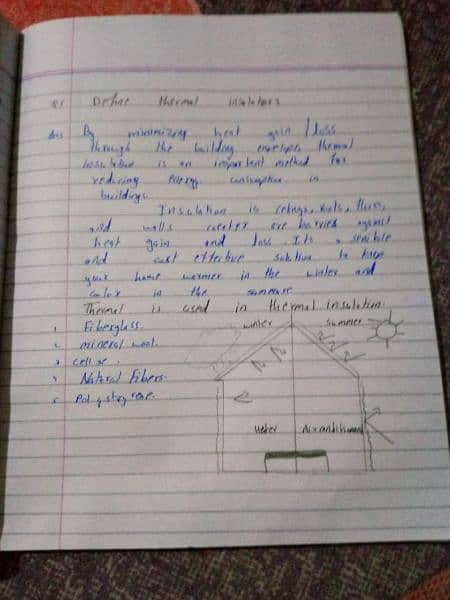 Define thermal insulators
Ans By minimizing heat gain / loss
through the building envelopes thermal
insulation is an important method for
reducing energy consumption in
buildings.
Insulation is ceilings, roofs, floor,
and walls are barries against
heat gain and loss. Its a sensible
and cost effective solution to keep
your home wormer in the winter and
in the
Thermal is used in thermal insulation:
1. Fiberglass.
2. mineral wool.
3
4 Natural Fibers.
5
winter summer
Heter Airconditioner